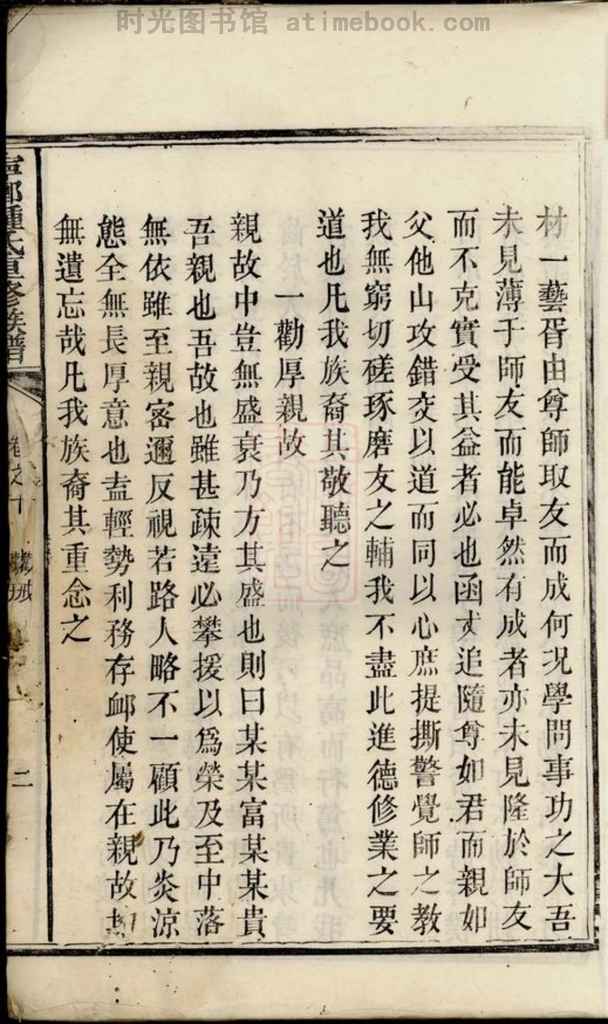 时光图书馆 atimebook.com
材一藝胥由尊師取友而成何况學問事功之大吾
未見薄于師友而能卓然有成者亦未見隆於師友
而不克實受其益者必也函丈追隨尊如君而親如
父他山攻錯交以道而同以心庶提撕警覺師之教
我無窮切磋琢磨友之輔我不盡此進德修業之要
道也凡我族裔其敬聽之
一勸厚親故
親故中豈無盛衰乃方其盛也則曰某某富某某貴
吾親也吾故也雖甚疎遠必攀援以爲榮及至中落
無依雖至親密邇反視若路人略不一顧此乃炎涼
態全無長厚意也盍輕勢利務存卹使屬在親故
無遺忘哉凡我族裔其重念之
鄉鍾氏重修族譜
卷之十
二